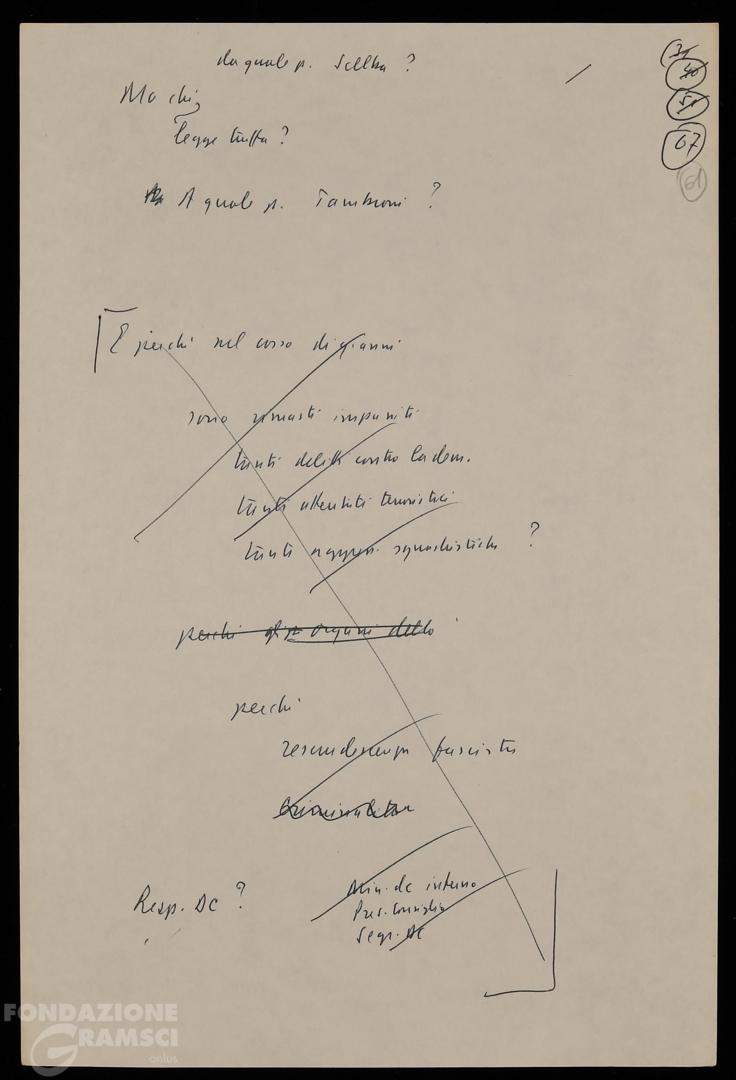 da quale p. Scelba ?
Ma chi
legge truffa ?
A quale p. Tambroni ?
31
40
51
67
61
E perché nel corso di gˢ anni
sono rimasti impuniti
tanti delitti contro la dem.
tanti attentati terroristici
tanti aggress. squadristiche ?
perché gli organi dello
perché
recrudescenza fascista
criminalità
Resp. DC ?
Min. dc interno
Pres. Consiglio
Segr. DC
FONDAZIONE
GRAMSCI
onlus